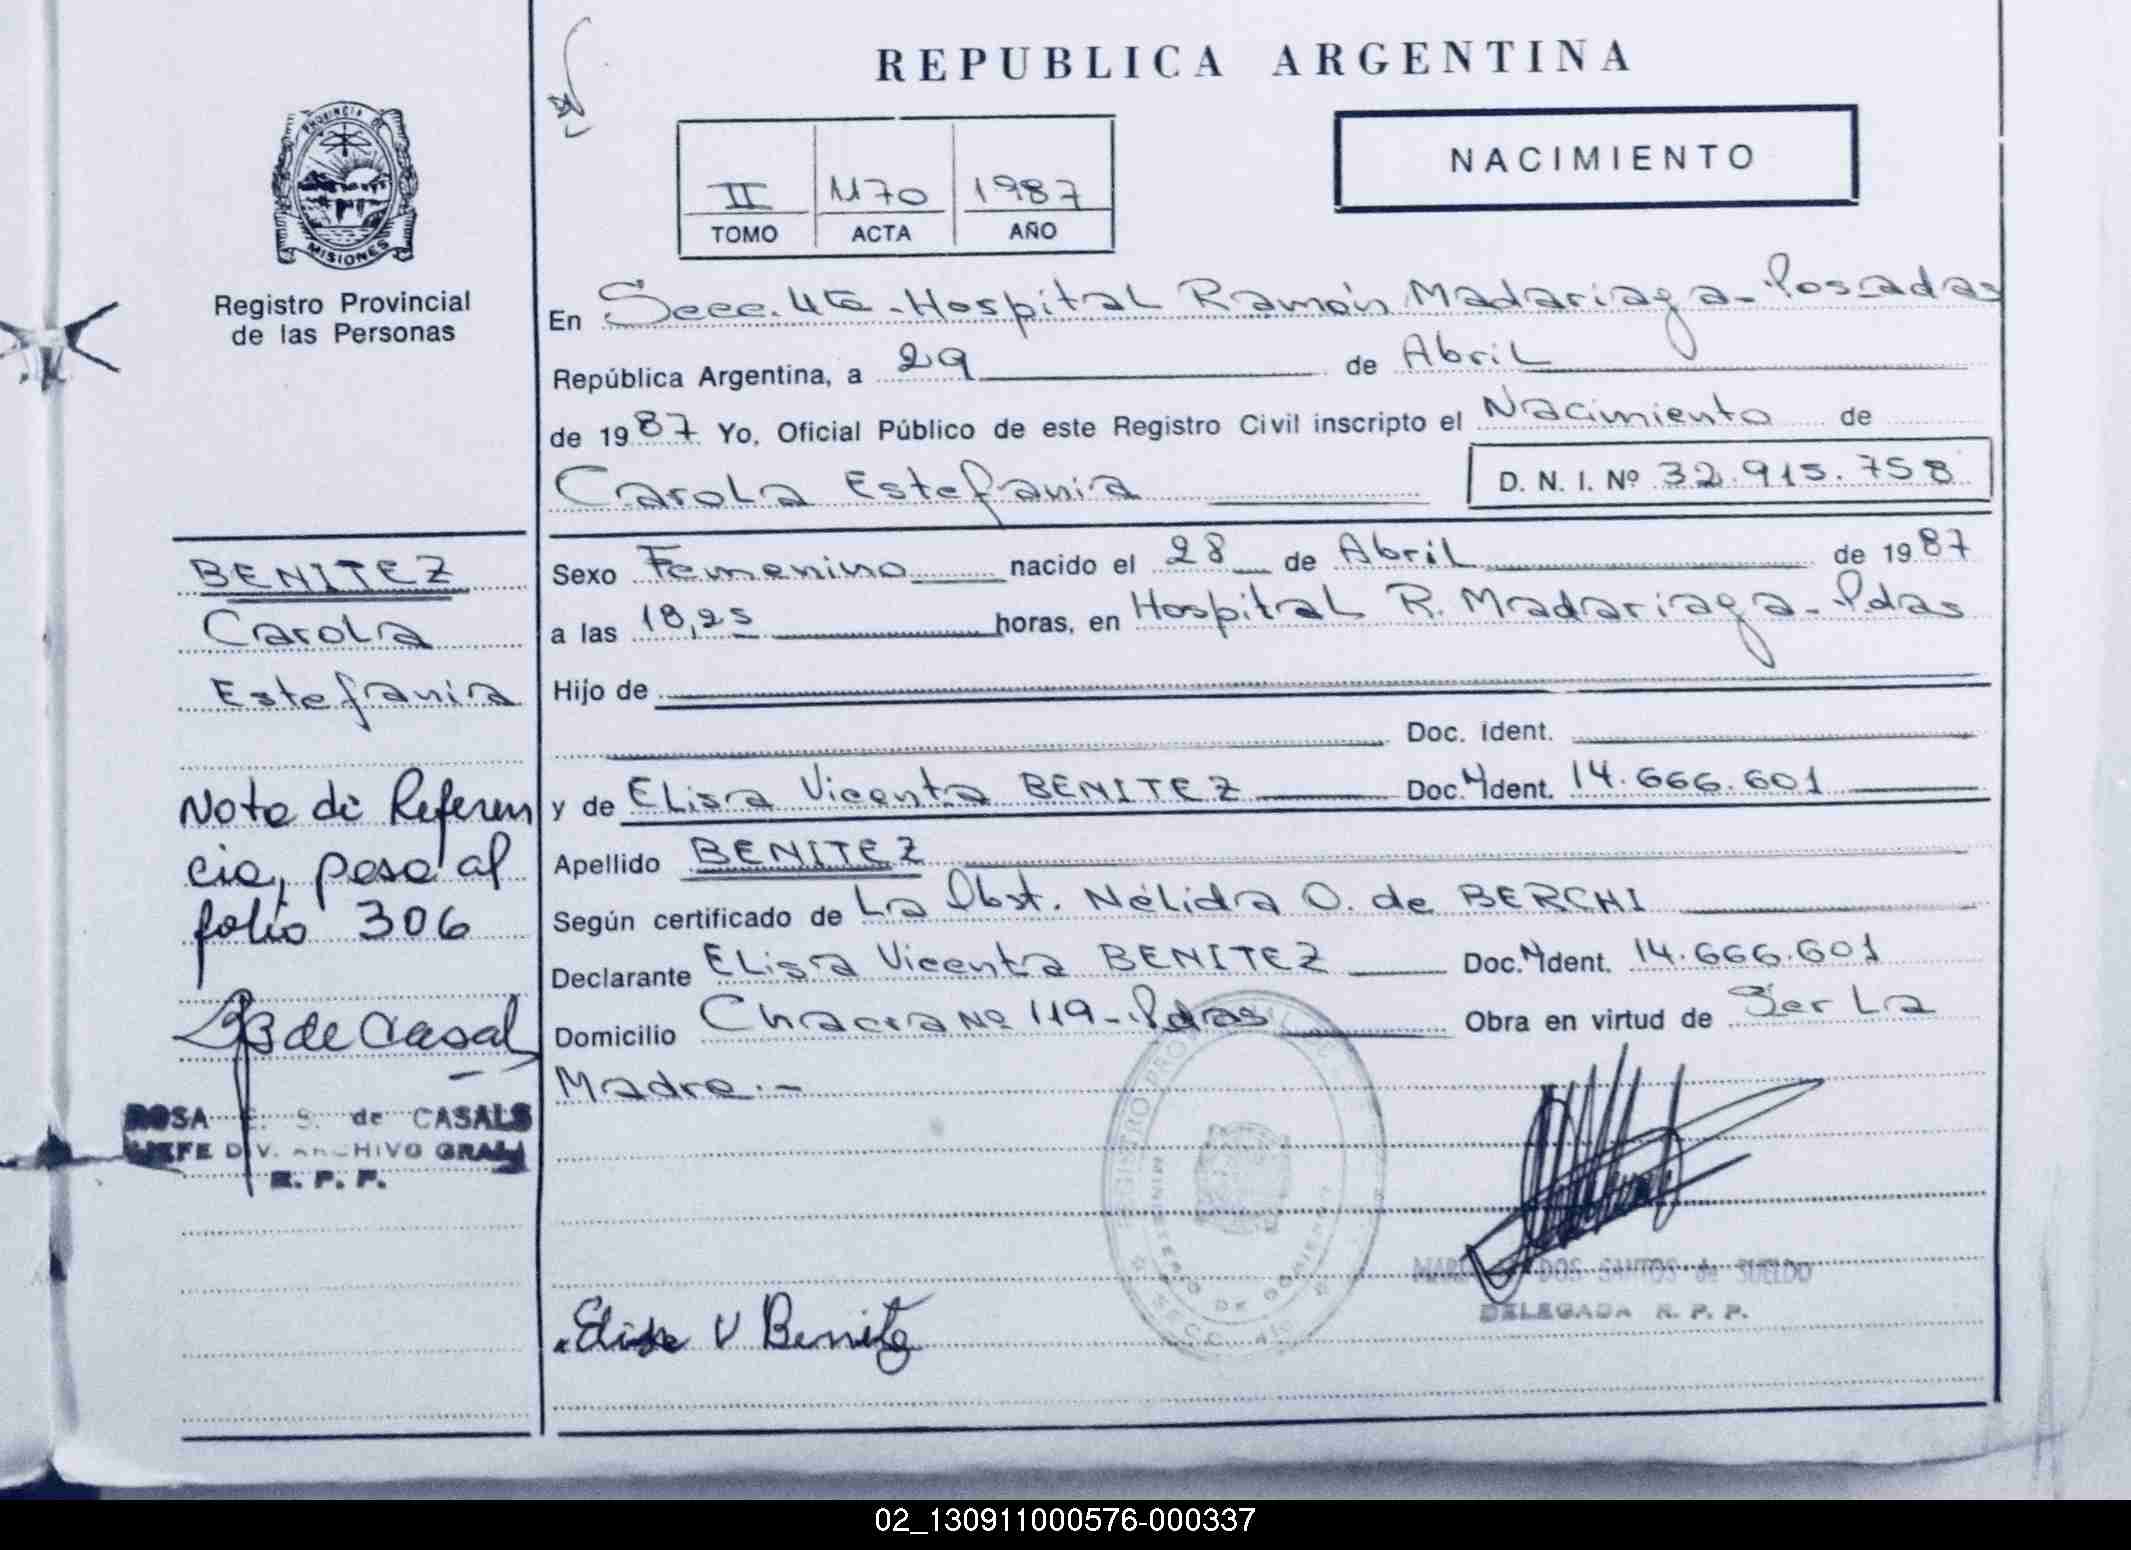 REPUBLICA ARGENTINA
NACIMIENTO
II 1170 1987
TOMO ACTA AÑO
PROVINCIA DE
MISIONES
Registro Provincial
de las Personas
En Secc. 4ta - Hospital Ramón Madariaga - Posadas
República Argentina, a 29 de Abril
de 1987 Yo, Oficial Público de este Registro Civil inscripto el Nacimiento de
Carola Estefania D. N. I. Nº 32.915.758
Sexo Femenino nacido el 28 de Abril de 1987
a las 18,25 horas, en Hospital R. Madariaga - Pdas
Hijo de
Doc. Ident.
y de Elisa Vicenta BENITEZ Doc. Ident. 14.666.601
Apellido BENITEZ
Según certificado de La Obst. Nélida O. de BERCHI
Declarante Elisa Vicenta BENITEZ Doc. Ident. 14.666.601
Domicilio Chacra Nº 119 - Pdas Obra en virtud de Ser La
Madre.-
BENITEZ
Carola
Estefania
Nota de Referen
cia, pasa al
folio 306
de Casals
ROSA E. S. de CASALS
JEFE DIV. ARCHIVO GRAL
R. P. P.
REGISTRO
MINISTERIO DE GOBIERNO
SECC. 4ta
DOS SANTOS de SUELDO
DELEGADA R. P. P.
Elisa V Benitez
02_130911000576-000337